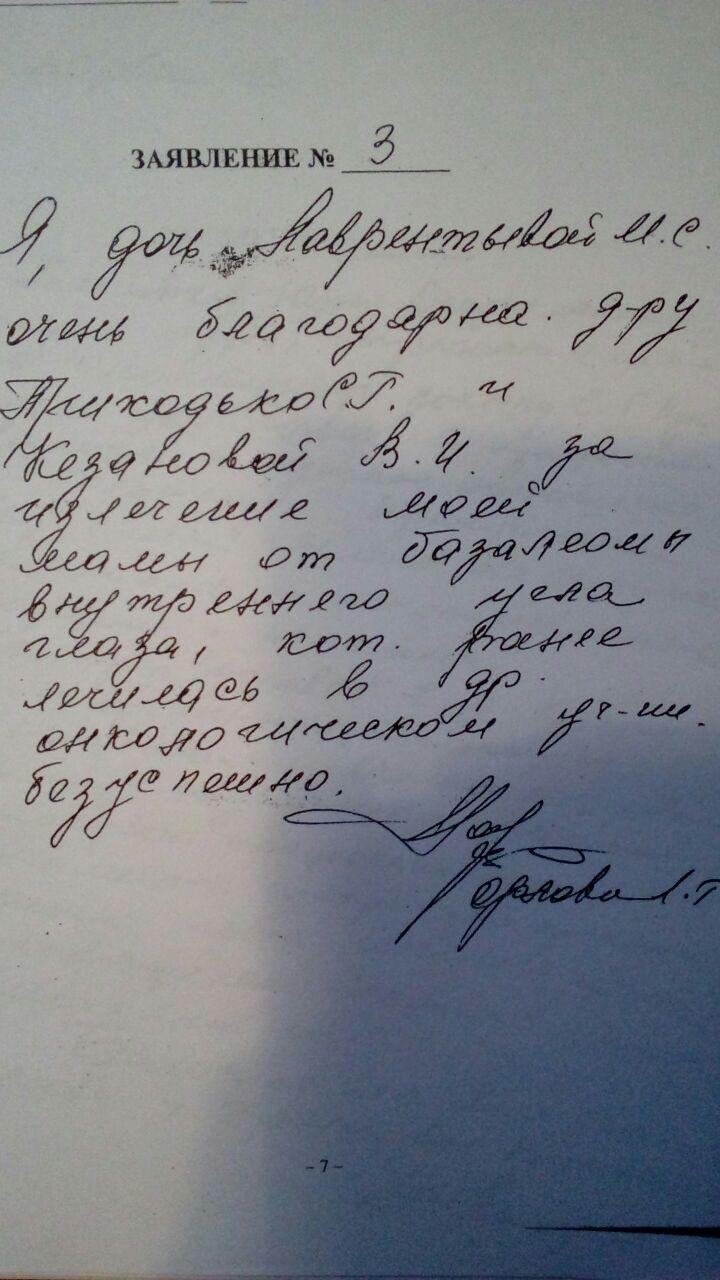 ЗАЯВЛЕНИЕ № 3
Я, дочь Лаврентьевой М.С.
очень благодарна. д-ру
Приходько С.Г. и
Кезановой В.И. за
излечение моей
мамы от базалеомы
внутреннего угла
глаза, кот. ранее
лечилась в др.
онкологическом уч-ии.
безуспешно.
Л.Г
-7-